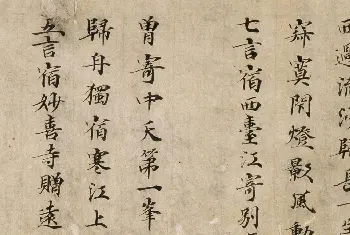 西過流沙歸
寂寞閑燈影風動
七言宿西臺江寄別
曽寄中天第一峯
歸舟獨宿寒江上
五言宿妙喜寺贈遠